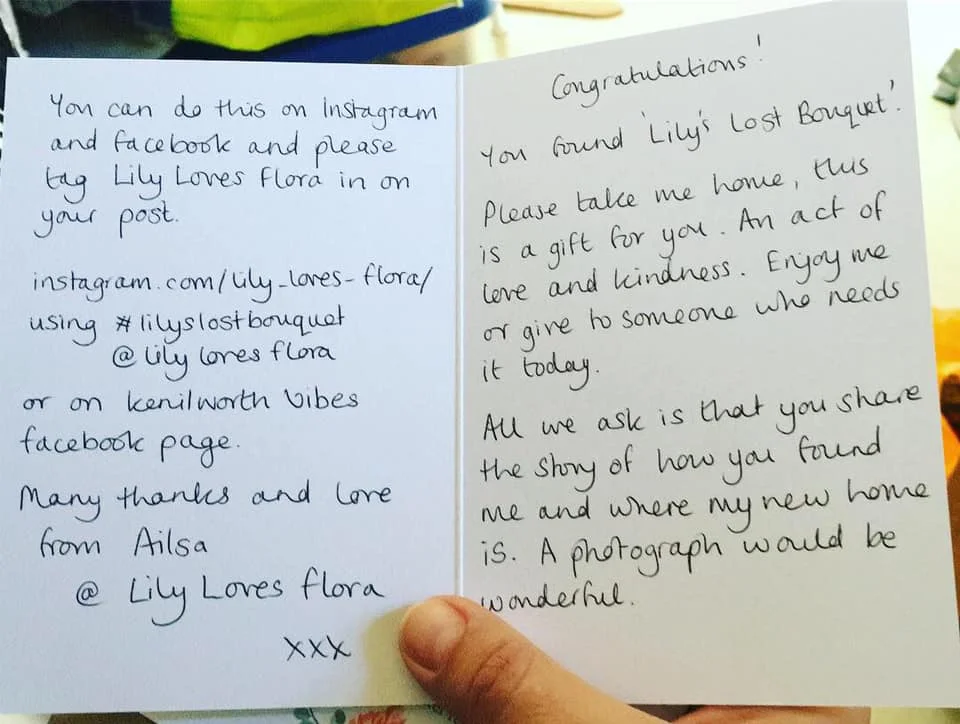 You can do this on instagram
and facebook and please
tag Lily Loves Flora in on
your post.
instagram.com/lily_loves_flora/
using #lilyslostbouquet
@ Lily loves flora
or on Kenilworth Vibes
facebook page.
Many thanks and love
from Ailsa
@ Lily Loves flora
xxx
Congratulations!
You found 'Lily's Lost Bouquet'.
Please take me home, this
is a gift for you. An act of
love and kindness. Enjoy me
or give to someone who needs
it today.
All we ask is that you share
the story of how you found
me and where my new home
is. A photograph would be
wonderful.